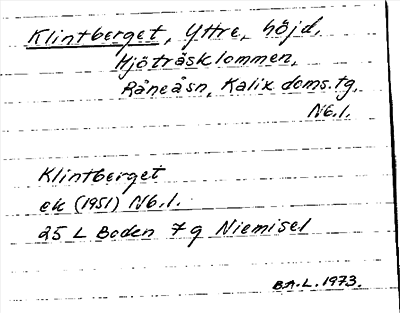 Klintberget, Yttre, höjd,
Mjöträsklommen,
Råneåsn, Kalix doms.tg,
Nb.l.
Klintberget
ek (1951) Nb.l.
25 L Boden 7g Niemisel
B.A.L. 1973.